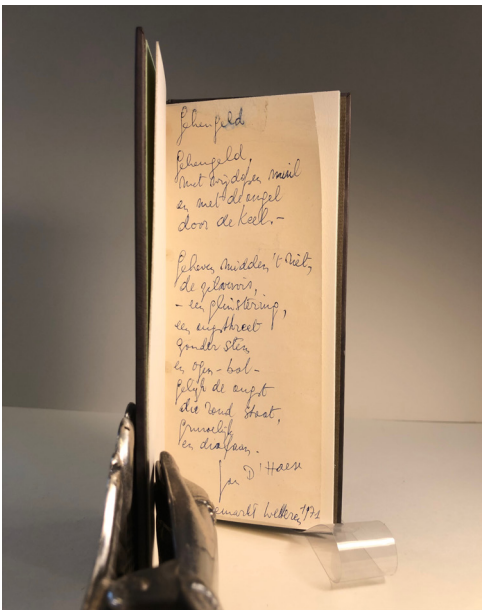 Gehengeld
Gehengeld,
met wijdopen muil
en met de angel
door de keel.-
Geheven midden 't riet,
de zilvervis,
- een glinstering,
een angstkreet
zonder stem
en ogen-bol-
gelijk de angst
die rond staat,
gruwelijk
en diafaan.
Jan D'Haese
Wetteren 1971